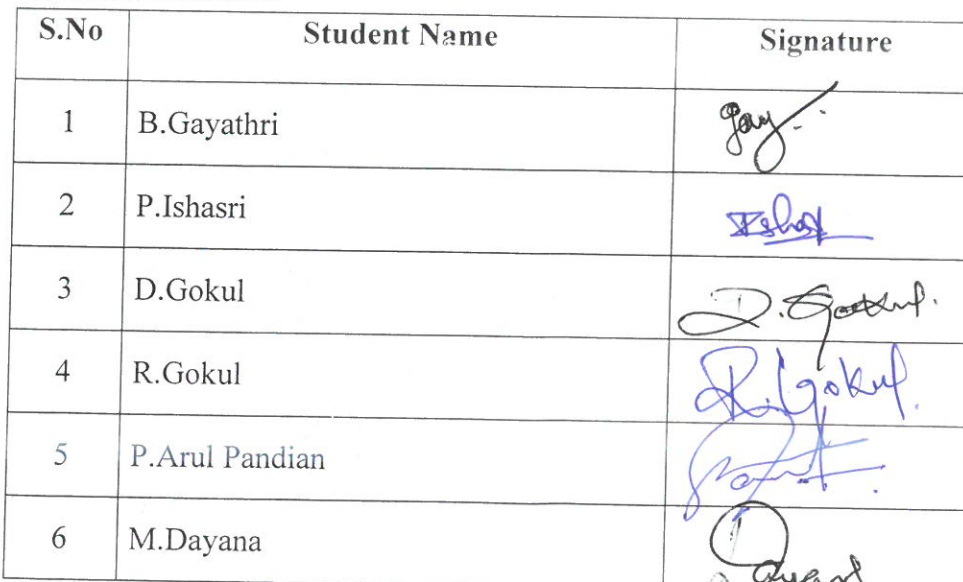 S.No Student Name Signature
1 B.Gayathri Gay
2 P.Ishasri
3 D.Gokul D.Gokul.
4 R.Gokul R.Gokul.
5 P.Arul Pandian
6 M.Dayana